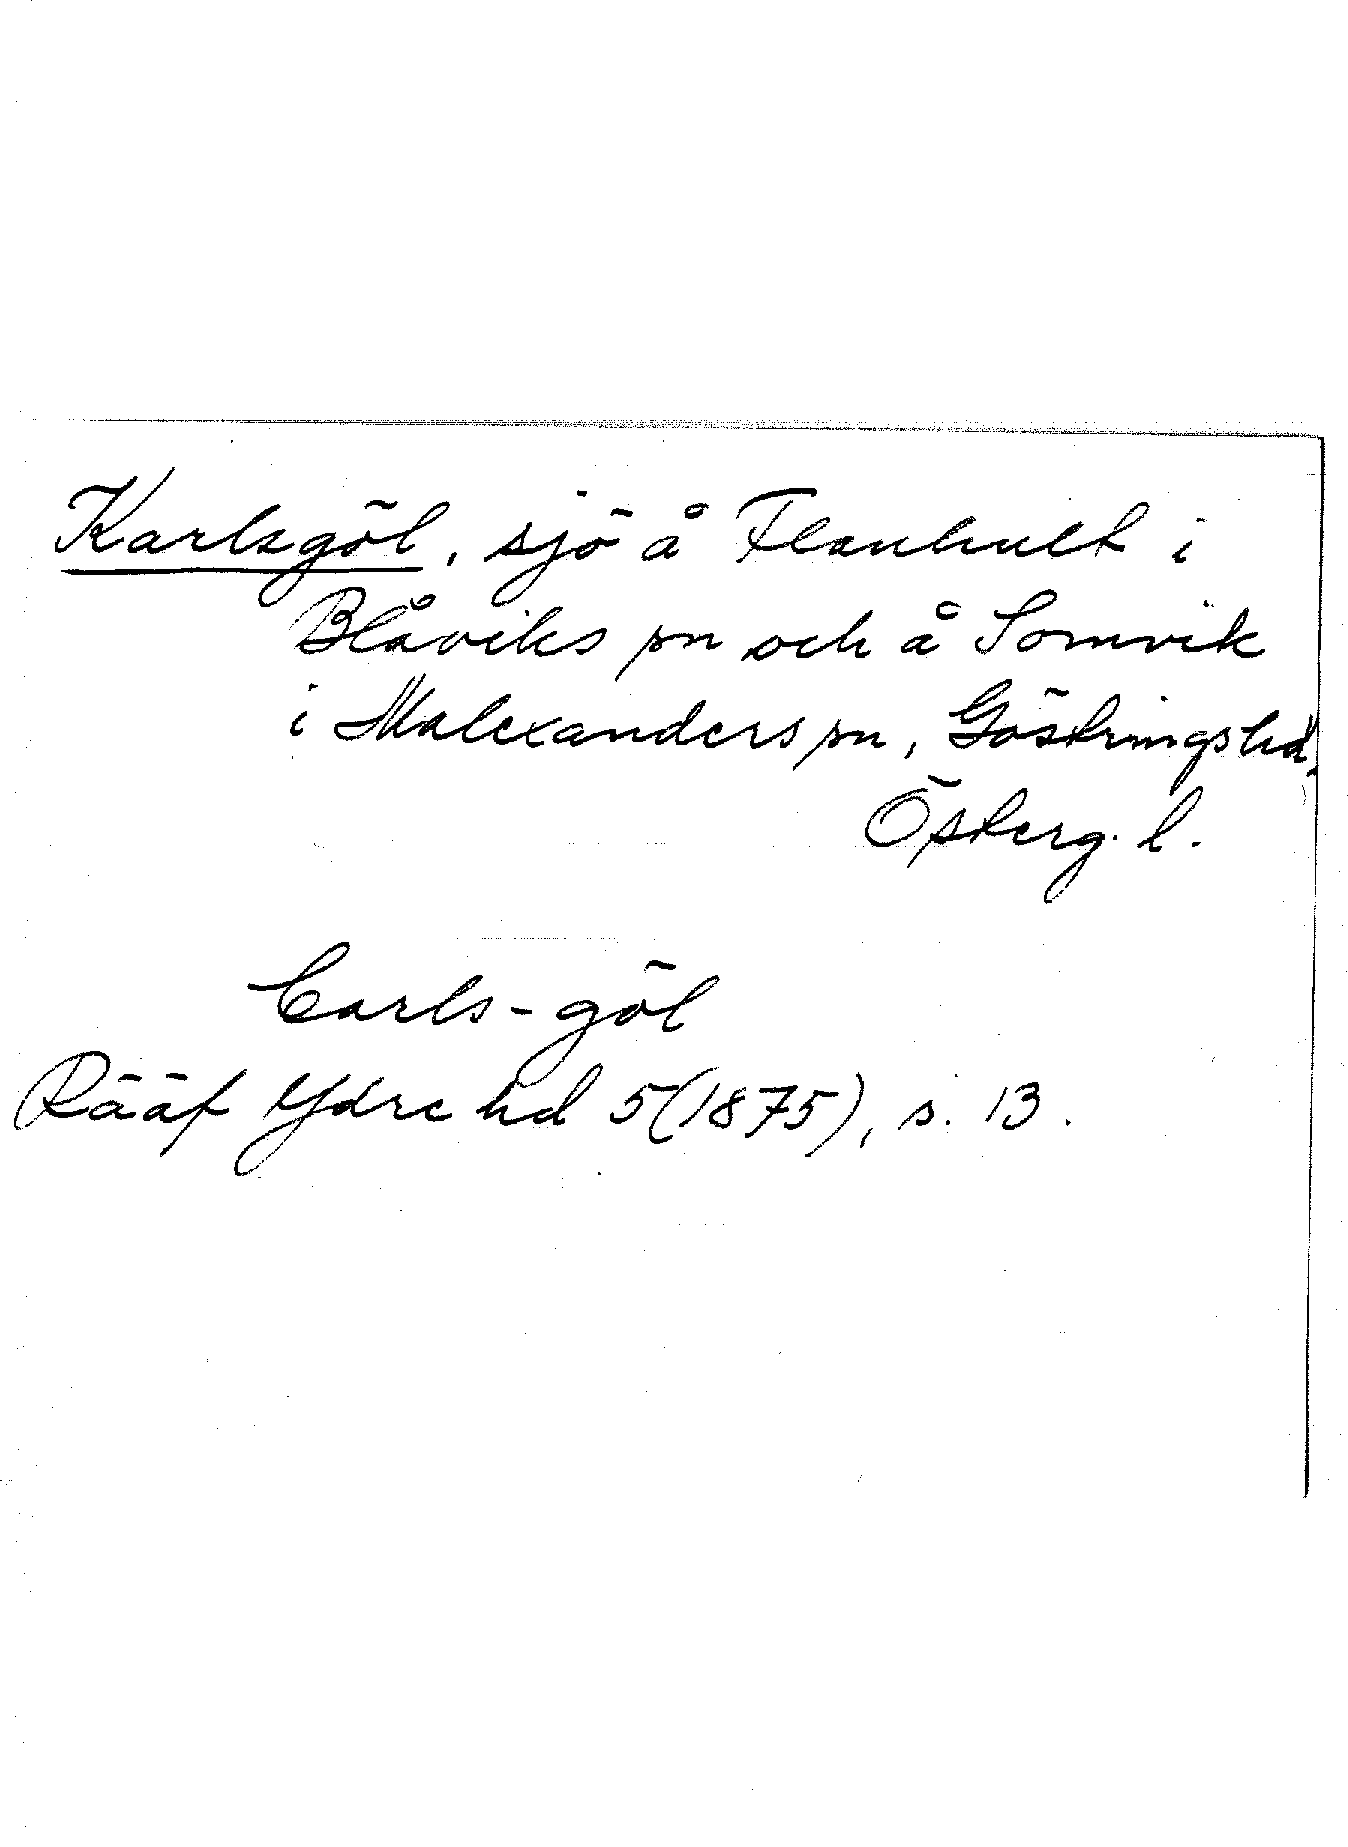 Karlsgöl, sjö å Flanhult i
Blåviks sn och å Somvik
i Malexanders sn, Göstringshd,
Österg. l.
Carls-göl
Rääf Ydre hd 5(1875), s. 13.